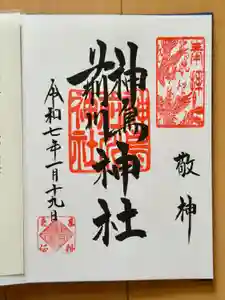 敬神
神鳥
前川
神社
令和七年一月十九日